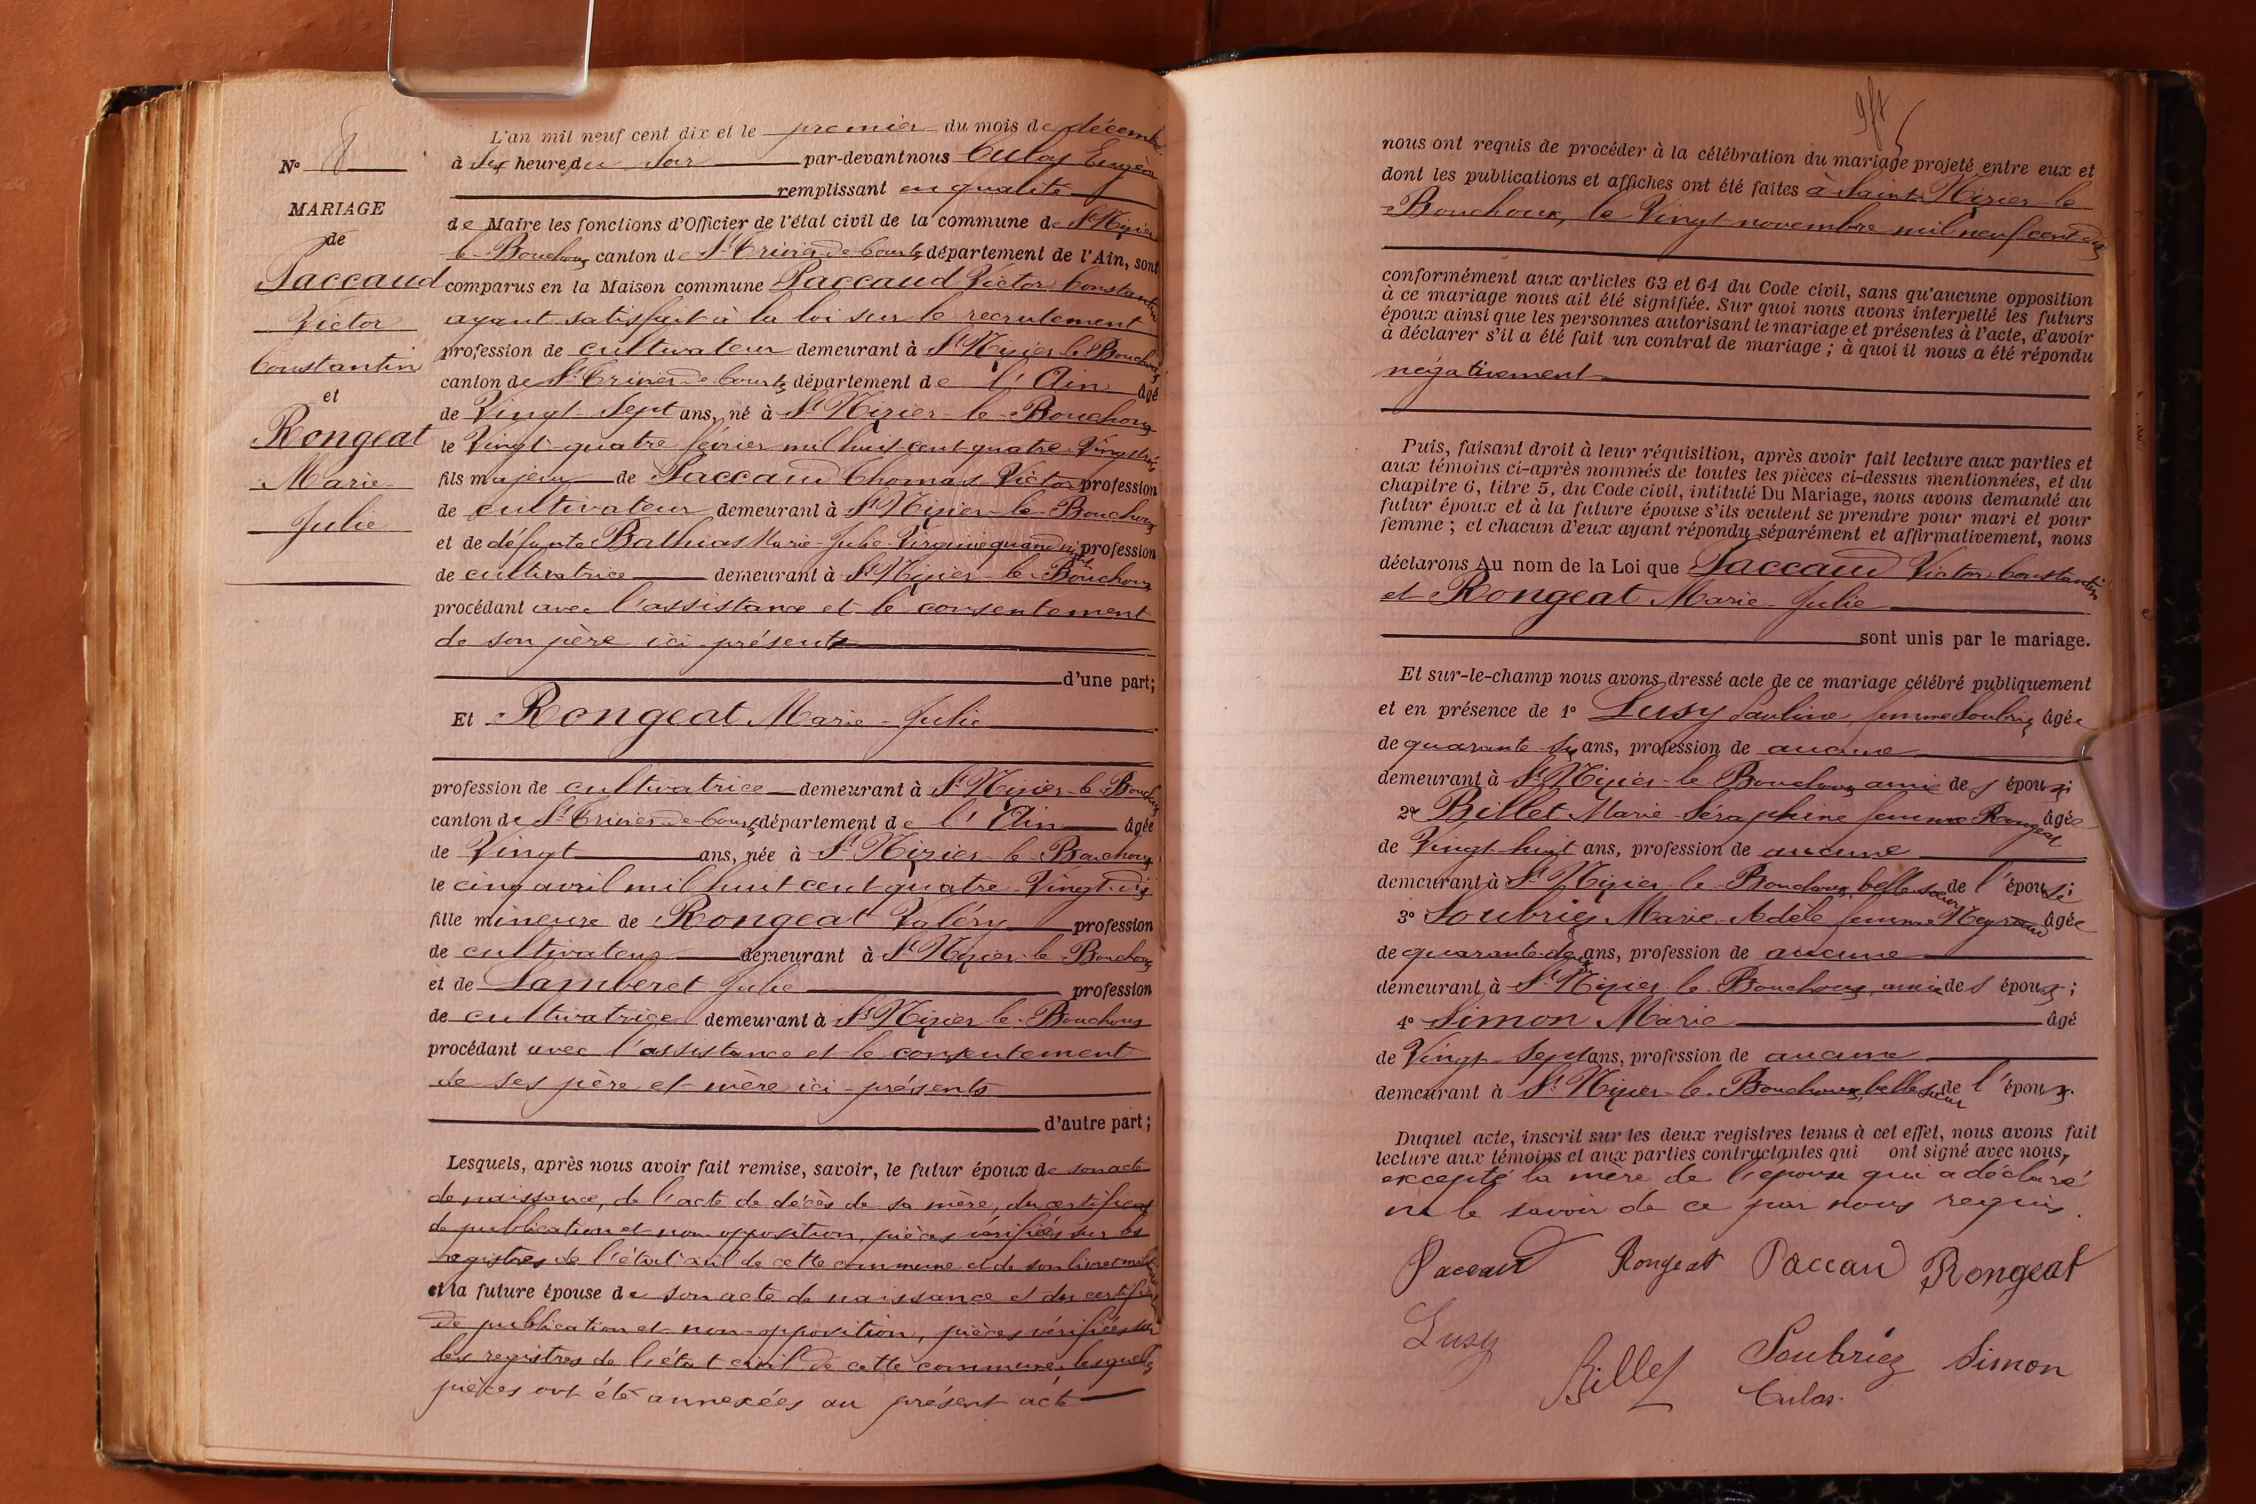 N° 8
MARIAGE
de
Paccaud
Victor
Constantin
et
Rongeat
Marie
Julie
L'an mil neuf cent dix et le premier du mois de décembre
à six heures du soir par-devant nous Culas Eugène
remplissant en qualité
de Maire les fonctions d'Officier de l'état civil de la commune de St Nizier
le Bouchoux canton de St Trivier de Courtes département de l'Ain, sont
comparus en la Maison commune Paccaud Victor Constantin
ayant satisfait à la loi sur le recrutement
profession de cultivateur demeurant à St Nizier le Bouchoux
canton de St Trivier de Courtes département de l'Ain âgé
de Vingt-Sept ans, né à St Nizier-le-Bouchoux
le Vingt-quatre février mil huit cent quatre-Vingt
fils majeur de Paccaud Thomas Victor profession
de cultivateur demeurant à St Nizier-le-Bouchoux
et de défunte Bathias Marie-Julie-Virginie quand vivait profession
de cultivatrice demeurant à St Nizier-le-Bouchoux
procédant avec l'assistance et le consentement
de son père ici présent
d'une part;
Et Rongeat Marie-Julie
profession de cultivatrice demeurant à St Nizier-le-Bouchoux
canton de St Trivier de Courtes département de l'Ain âgée
de Vingt ans, née à St Nizier-le-Bouchoux
le cinq avril mil huit cent quatre-Vingt-dix
fille mineure de Rongeat Valéry profession
de cultivateur demeurant à St Nizier-le-Bouchoux
et de Lamberet Julie profession
de cultivatrice demeurant à St Nizier-le-Bouchoux
procédant avec l'assistance et le consentement
de ses père et mère ici-présents
d'autre part;
Lesquels, après nous avoir fait remise, savoir, le futur époux de son acte
de naissance, de l'acte de décès de sa mère, du certificat
de publication et non opposition, pièces vérifiées sur les
registres de l'état civil de cette commune et de son livret militaire
et la future épouse de son acte de naissance et du certificat
de publication et non-opposition, pièces vérifiées sur
les registres de l'état civil de cette commune, lesquelles
pièces ont été annexées au présent acte
nous ont requis de procéder à la célébration du mariage projeté entre eux et
dont les publications et affiches ont été faites à Saint-Nizier le
Bouchoux, le Vingt novembre mil neuf cent dix
conformément aux articles 63 et 64 du Code civil, sans qu'aucune opposition
à ce mariage nous ait été signifiée. Sur quoi nous avons interpellé les futurs
époux ainsi que les personnes autorisant le mariage et présentes à l'acte, d'avoir
à déclarer s'il a été fait un contrat de mariage; à quoi il nous a été répondu
négativement
Puis, faisant droit à leur réquisition, après avoir fait lecture aux parties et
aux témoins ci-après nommés de toutes les pièces ci-dessus mentionnées, et du
chapitre 6, titre 5, du Code civil, intitulé Du Mariage, nous avons demandé au
futur époux et à la future épouse s'ils veulent se prendre pour mari et pour
femme; et chacun d'eux ayant répondu séparément et affirmativement, nous
déclarons Au nom de la Loi que Paccaud Victor Constantin
et Rongeat Marie-Julie
sont unis par le mariage.
Et sur-le-champ nous avons dressé acte de ce mariage célébré publiquement
et en présence de 1° Lusy Pauline femme Soubriez âgée
de quarante-six ans, profession de aucune
demeurant à St Nizier-le-Bouchoux amie des époux;
2° Billet Marie-Séraphine femme Rongeat âgée
de Vingt-huit ans, profession de aucune
demeurant à St Nizier le Bouchoux, belle soeur de l'épouse;
3° Soubriez Marie-Adèle femme Neyraud âgée
de quarante-deux ans, profession de aucune
demeurant à St Nizier le Bouchoux, amie des époux;
4° Simon Marie âgé
de Vingt-Sept ans, profession de aucune
demeurant à St Nizier-le-Bouchoux, belle soeur de l'époux.
Duquel acte, inscrit sur les deux registres tenus à cet effet, nous avons fait
lecture aux témoins et aux parties contractantes qui ont signé avec nous,
excepté la mère de l'épouse qui a déclaré
ne le savoir de ce par nous requis.
Paccaud Rongeat Paccaud Rongeat
Lusy Billet Soubriez Simon
Culas